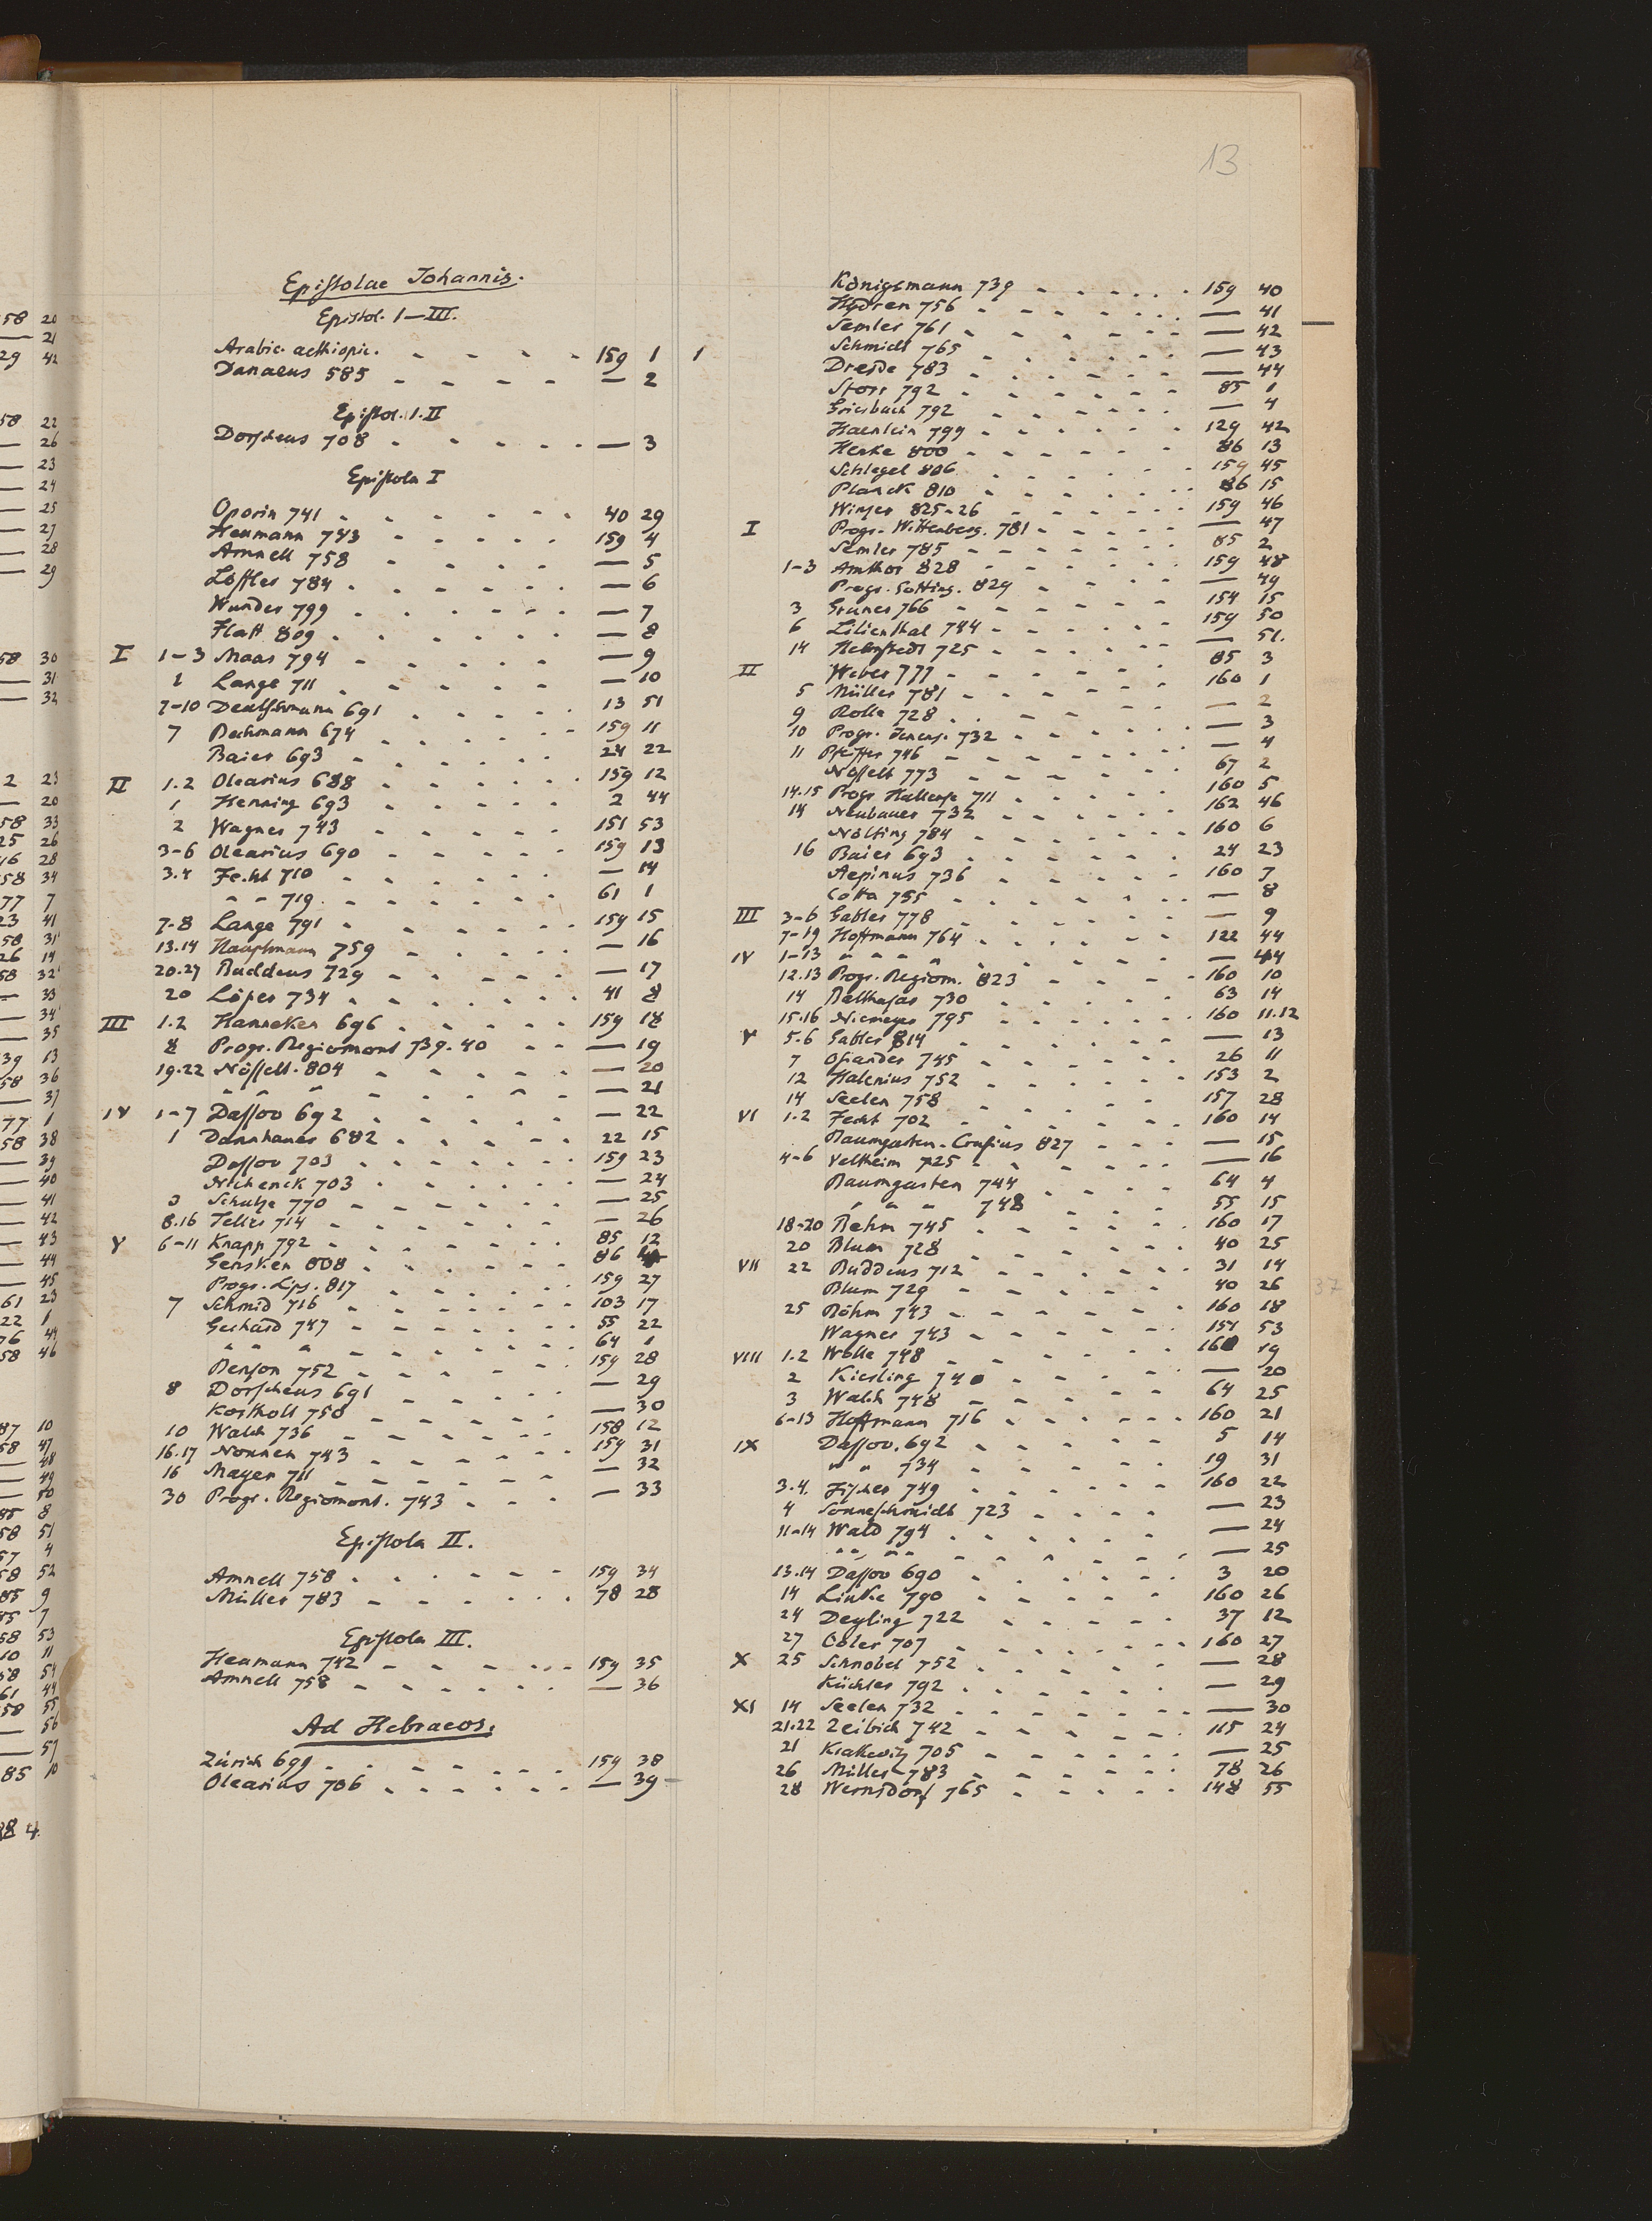 13
Epistolae Johannis.
Epistol. I–III.
Arabic. aethiopic. 159 1 1
Danaeus 585 — 2
Epistol. I. II
Dorscheus 708 — 3
Epistola I
Oporin 741 40 29
Heumann 743 159 4
Amnell 758 — 5
Löffler 784 — 6
Wunder 799 — 7
Flatt 809 — 8
I 1–3 Maas 794 — 9
1 Lange 711 — 10
7–10 Deutschmann 691 13 51
7 Bechmann 674 159 11
Baier 693 24 22
II 1.2 Olearius 688 159 12
1 Henning 693 2 44
2 Wagner 743 151 53
3–6 Olearius 690 159 13
3.4 Fecht 710 — 14
" " 719 61 1
7–8 Lange 791 159 15
13.14 Hauptmann 759 — 16
20.27 Buddeus 729 — 17
20 Löper 734 41 8
III 1.2 Hanneken 696 159 18
8 Progr. Regiomont 739.40 — 19
19–22 Nösselt. 804 — 20
" " " — 21
IV 1–7 Dassov 692 — 22
1 Dannhauer 682 22 15
Dassov 703 159 23
Nichenck 703 — 24
3 Schulze 770 — 25
8.16 Teller 714 — 26
V 6–11 Knapp 792 85 12
Gensken 808 86
Progr. Lips. 817 159 27
7 Schmid 716 103 17
Gerhard 747 55 22
" " " 64 1
Benson 752 159 28
8 Dorscheus 691 — 29
Kortholt 750 — 30
10 Walch 736 158 12
16.17 Nonnen 743 159 31
16 Mayer 711 — 32
30 Progr. Regiomont. 743 — 33
Epistola II.
Amnell 758 159 34
Müller 783 78 28
Epistola III.
Heumann 742 159 35
Amnell 758 — 36
Ad Hebraeos.
Zürich 699 159 38
Olearius 706 — 39
Königsmann 739 159 40
756 — 41
Semler 761 — 42
Schmidt 765 — 43
Dresde 783 — 44
Storr 792 85 1
Griesbach 792 — 4
Haenlein 799 129 42
Henke 800 86 13
Schlegel 806 159 45
Planck 810 86 15
Winzer 825–26 159 46
I Progr. Wittenberg. 781 — 47
Semler 785 85 2
1–3 Amthor 828 159 48
Progr. Gotting. 829 — 49
3 Gruner 766 154 15
6 Lilienthal 744 159 50
14 Helmstedt 725 — 51.
II Weber 777 85 3
5 Müller 781 160 1
9 Rolle 728 — 2
10 Progr. Jenens. 732 — 3
11 Pfeiffer 746 — 4
Nösselt 773 67 2
14.15 Progr. Hallense 711 160 5
14 Neubauer 732 162 46
Nölting 784 160 6
16 Baier 693 24 23
Aepinus 736 160 7
Cotta 755 — 8
III 3–6 Gabler 778 — 9
7–19 Hoffmann 764 122 44
IV 1–13 " " " " — 44
12.13 Progr. Regiom. 823 160 10
14 Balthasar 730 63 14
15.16 Niemeyer 795 160 11.12
V 5.6 Gabler 814 — 13
7 Osiander 745 26 11
12 Halenius 752 153 2
14 Seelen 758 157 28
VI 1.2 Fecht 702 160 14
Baumgarten-Crusius 827 — 15
4–6 Veltheim 725 — 16
Baumgarten 744 64 4
" " " 748 55 15
18–20 Behm 745 160 17
20 Blum 728 40 25
VII 22 Buddeus 712 31 14
Blum 729 40 26
25 Böhm 743 160 18
Wagner 743 151 53
VIII 1.2 Wolle 748 160 19
2 Kiesling 740 — 20
3 Walch 748 64 25
6–13 Hoffmann 716 160 21
IX Dassov. 692 5 14
" " 734 19 31
3.4. Fischer 749 160 22
4 Sonneschmidt 723 — 23
11–14 Wald 794 — 24
" " " " — 25
13.14 Dassov 690 3 20
14 Linke 790 160 26
24 Deyling 722 37 12
27 Obler 707 160 27
X 25 Schnobel 752 — 28
Küchler 792 — 29
XI 14 Seelen 732 — 30
21.22 Zeibich 742 115 24
21 Krakevitz 705 — 25
26 Müller 783 78 26
28 Wernsdorf 765 148 55
37